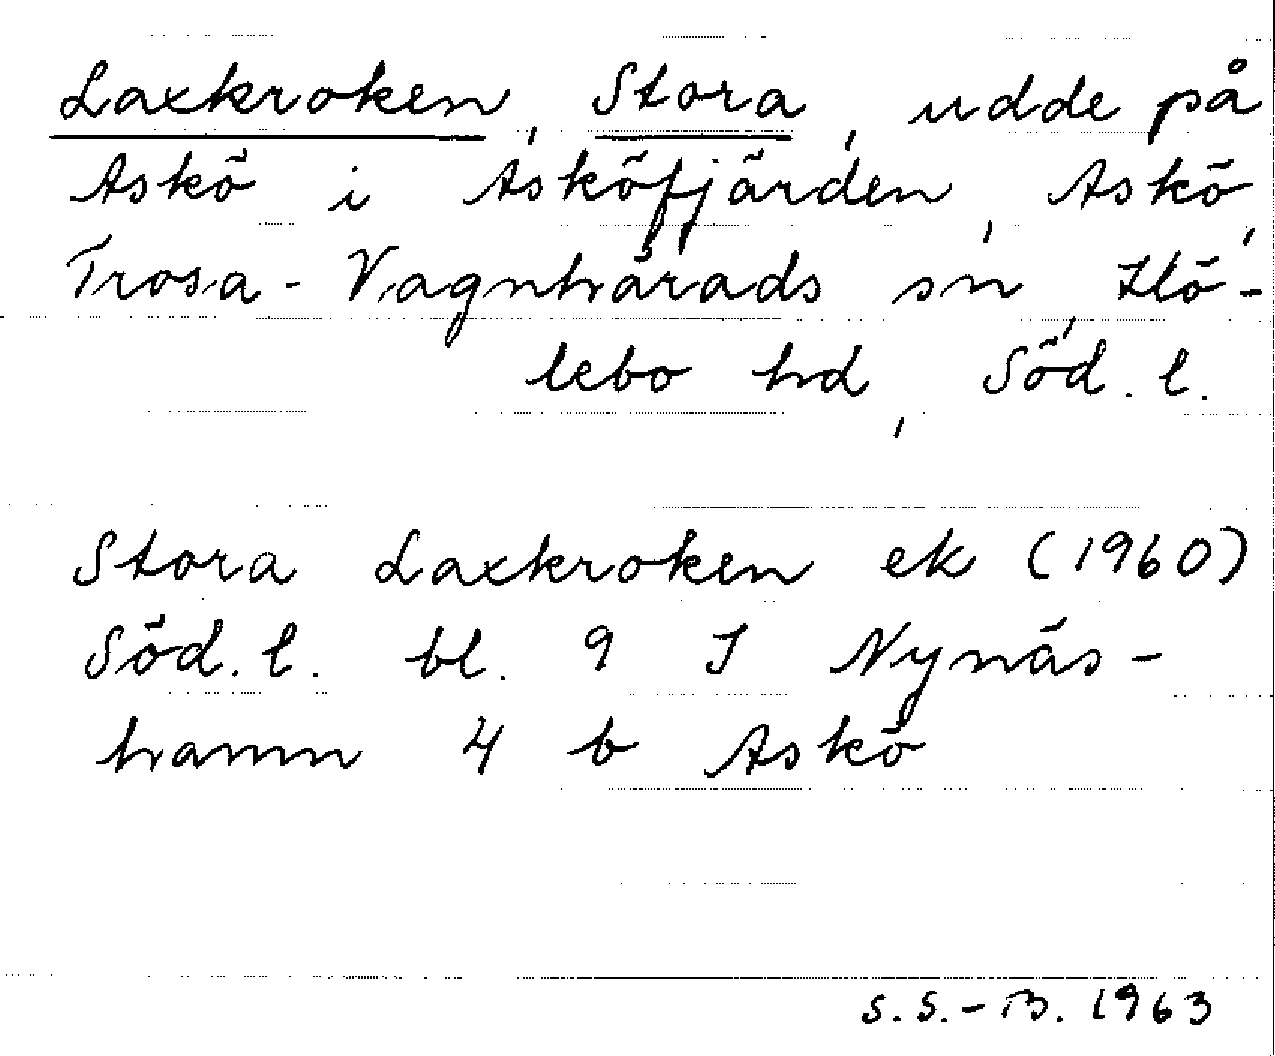 Laxkroken, Stora, udde på
Askö i Asköfjärden, Askö,
Trosa-Vagnhärads sn, Hö-
lebo hd, Söd. l.
Stora Laxkroken ek (1960)
Söd. l. bl. 9 I Nynäs-
hamn 4 b Askö
S.S.-B. 1963